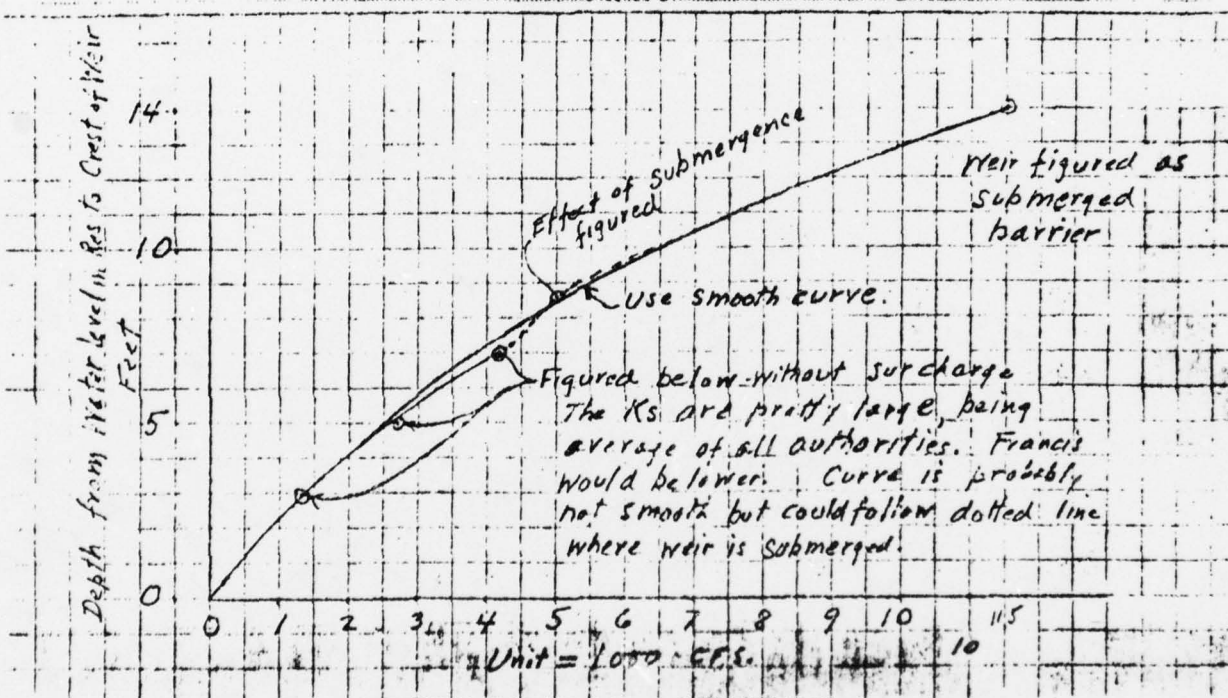 Depth from Water Level in Res to Crest of Weir
Feet
14
10
5
0
Effect of Submergence
figured
Weir figured as
submerged
barrier
Use smooth curve.
Figured below without surcharge
The Ks are pretty large, being
average of all authorities. Francis
would be lower. Curve is probably
not smooth but could follow dotted line
where weir is submerged.
0 1 2 3 4 5 6 7 8 9 10 11.5
Unit = 1000 C.F.S.
10